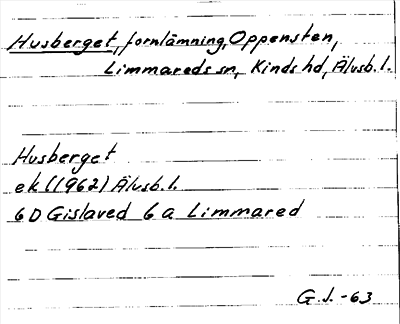 Husberget, fornlämning, Oppensten,
Limmareds sn, Kinds hd, Älvsb. l.
Husberget
ek (1962) Älvsb. l.
6D Gislaved 6a Limmared
G.J. -63